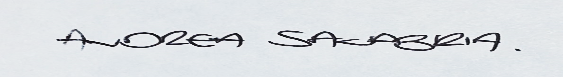 ANDREA SANABRIA.